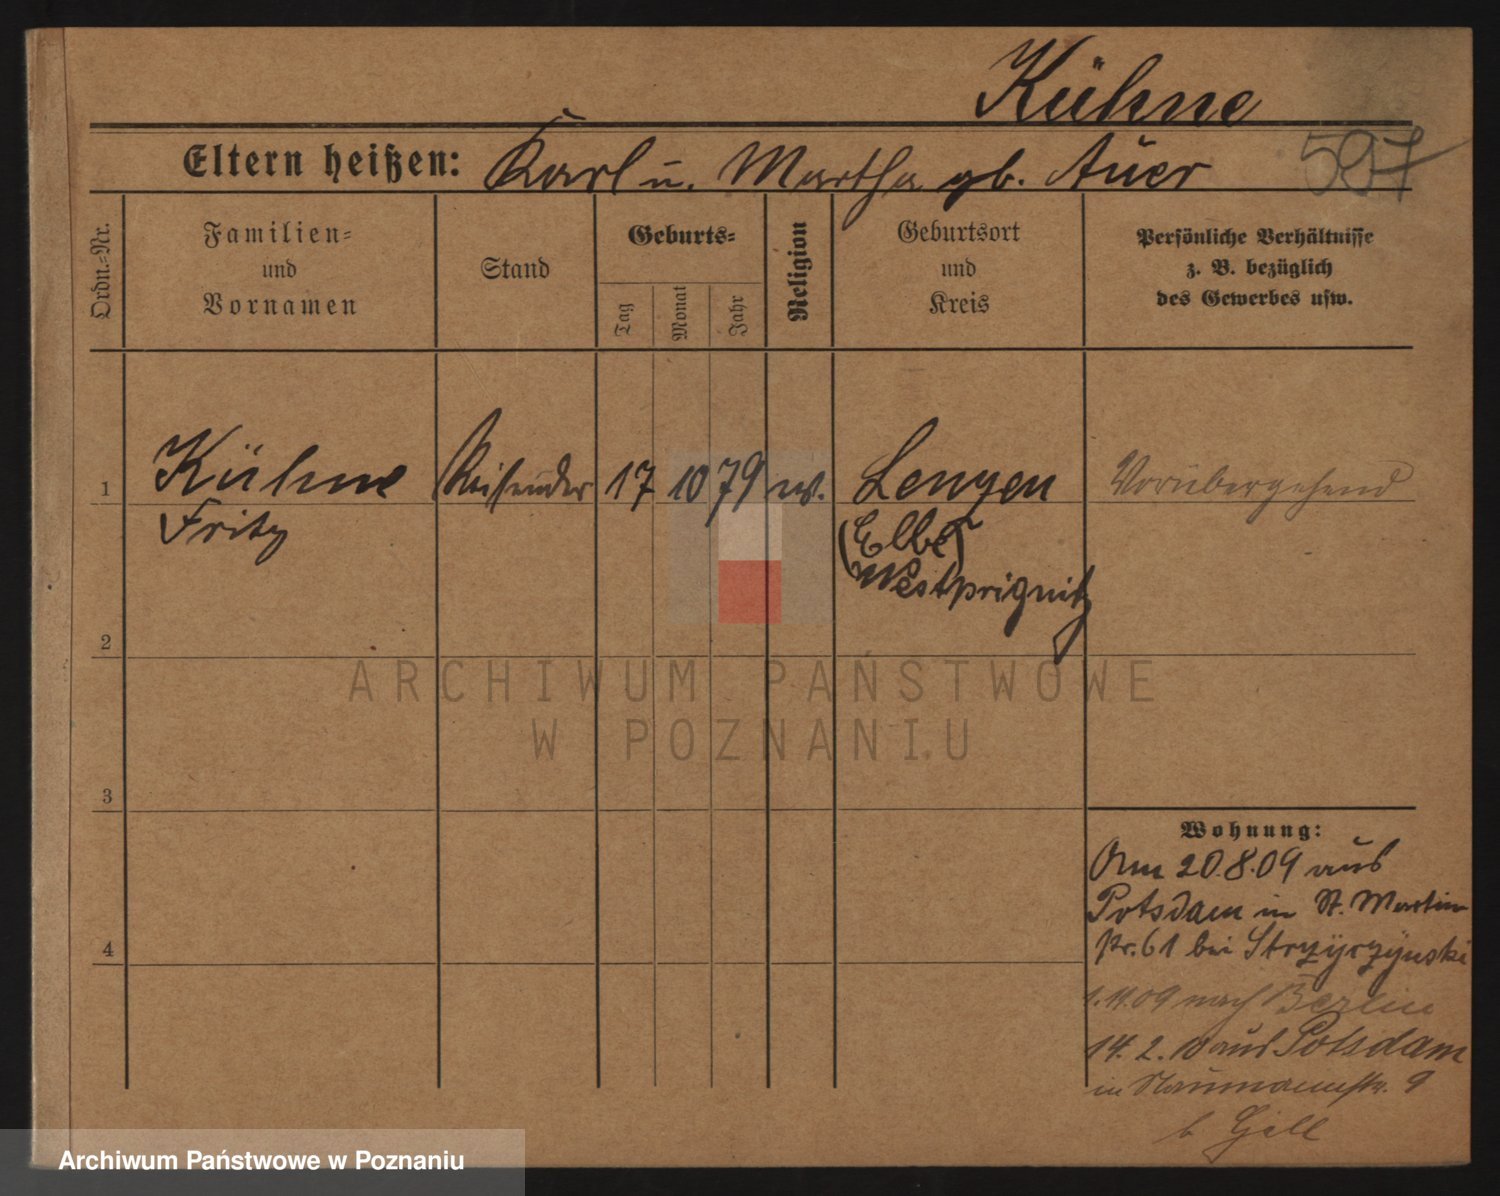 Kühne
597
Eltern heißen: Karl u. Martha gb. Auer
Ordn.-Nr.
Familien-
und
Vornamen
Stand
Geburts-
Tag
Monat
Jahr
Religion
Geburtsort
und
Kreis
Persönliche Verhältnisse
z. B. bezüglich
des Gewerbes usw.
1 Kühne Reisender 17 10 79 ev. Lenzen Vorübergehend
Fritz (Elbe)
Westprignitz
2
ARCHIWUM PAŃSTWOWE
W POZNANIU
3
Wohnung:
Am 20.8.09 aus
Potsdam in St. Martin
4
str. 61 bei
1.11.09 nach Berlin
14. 2. 10 aus Potsdam
in Naumannstr. 9
b Gill
Archiwum Państwowe w Poznaniu